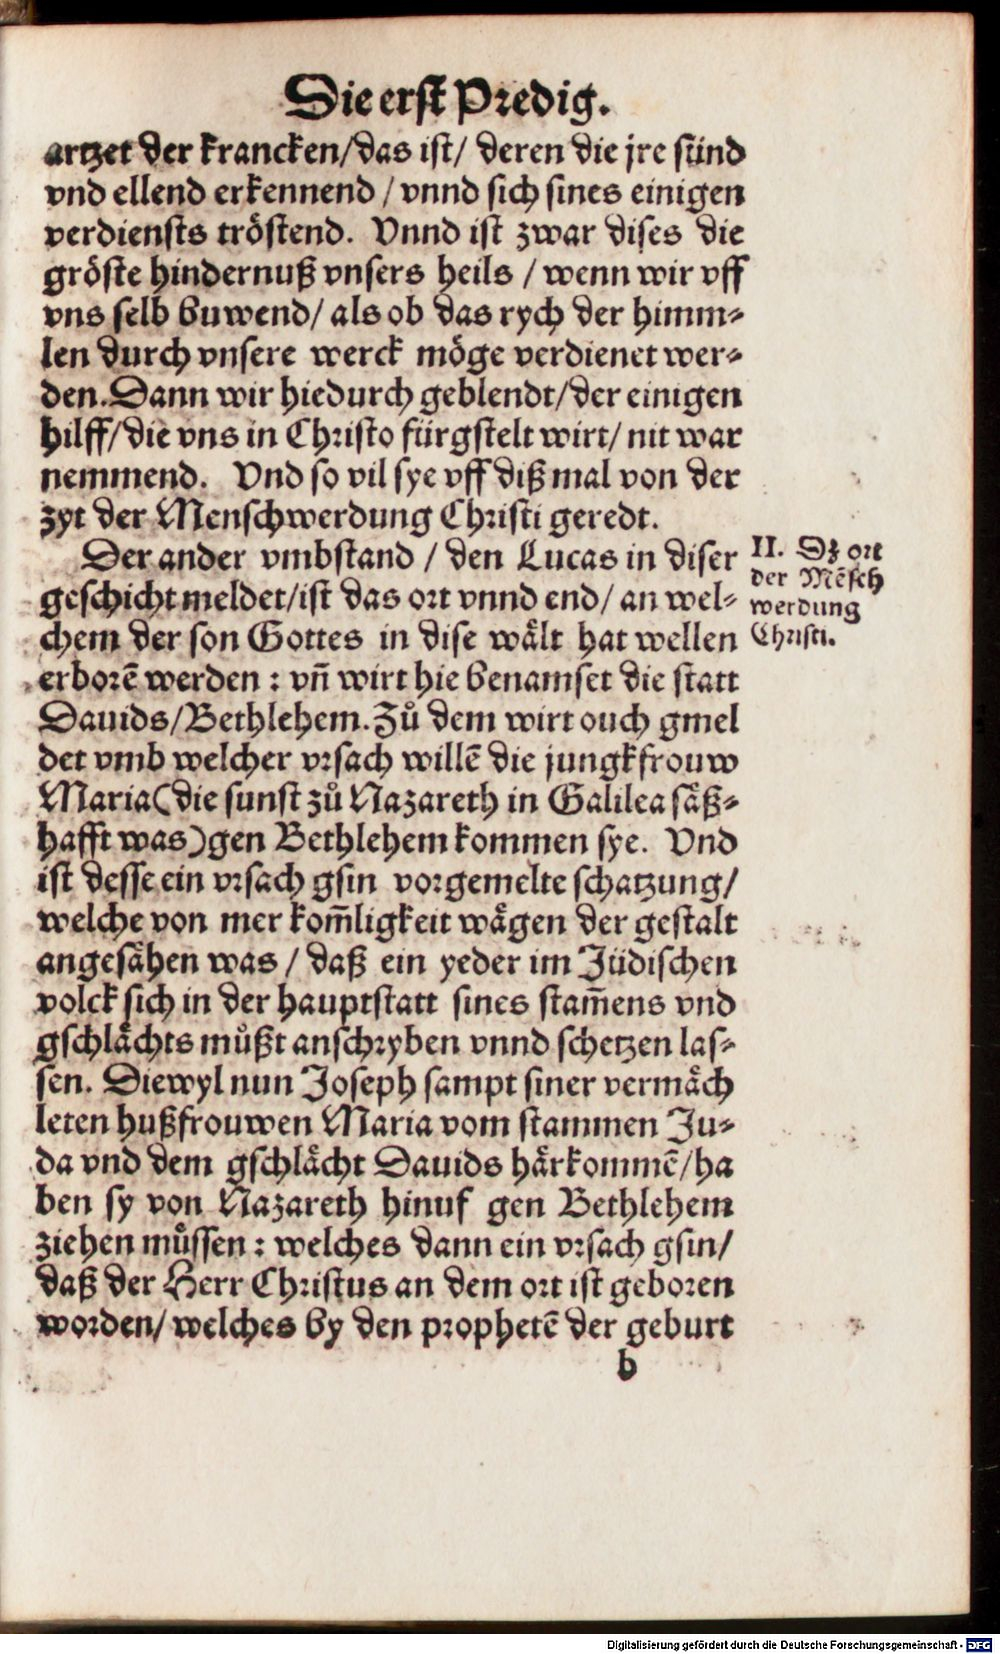 Die erst Predig.
artzet der krancken/das ist/ deren die jre sünd
vnd ellend erkennend / vnnd sich sines einigen
verdiensts tröstend. Vnnd ist zwar dises die
gröste hindernuß vnsers heils / wenn wir vff
vns selb buwend/ als ob das rych der himm-
len durch vnsere werck möge verdienet wer-
den. Dann wir hiedurch geblendt/der einigen
hilff/die vns in Christo fürgstelt wirt/ nit war
nemmend. Vnd so vil sye vff diß mal von der
zyt der Menschwerdung Christi geredt.
Der ander vmbstand / den Lucas in diser
geschicht meldet/ist das ort vnnd end/ an wel-
chem der son Gottes in dise wält hat wellen
erborē werden : vñ wirt hie benamset die statt
Dauids/Bethlehem. Zů dem wirt ouch gmel
det vmb welcher vrsach willē die jungkfrouw
Maria (die sunst zů Nazareth in Galilea säß-
hafft was) gen Bethlehem kommen sye. Vnd
ist desse ein vrsach gsin vorgemelte schatzung/
welche von mer kom̄ligkeit wägen der gestalt
angesähen was / daß ein yeder im Jüdischen
volck sich in der hauptstatt sines stam̄ens vnd
gschlächts můßt anschryben vnnd schetzen las-
sen. Diewyl nun Joseph sampt siner vermäch
leten hußfrouwen Maria vom stammen Ju-
da vnd dem gschlächt Dauids härkommē/ha
ben sy von Nazareth hinuf gen Bethlehem
ziehen můssen : welches dann ein vrsach gsin/
daß der Herr Christus an dem ort ist geboren
worden/ welches by den prophetē der geburt
b
II. Dz ort
der Mēsch
werdung
Christi.
Digitalisierung gefördert durch die Deutsche Forschungsgemeinschaft - DFG